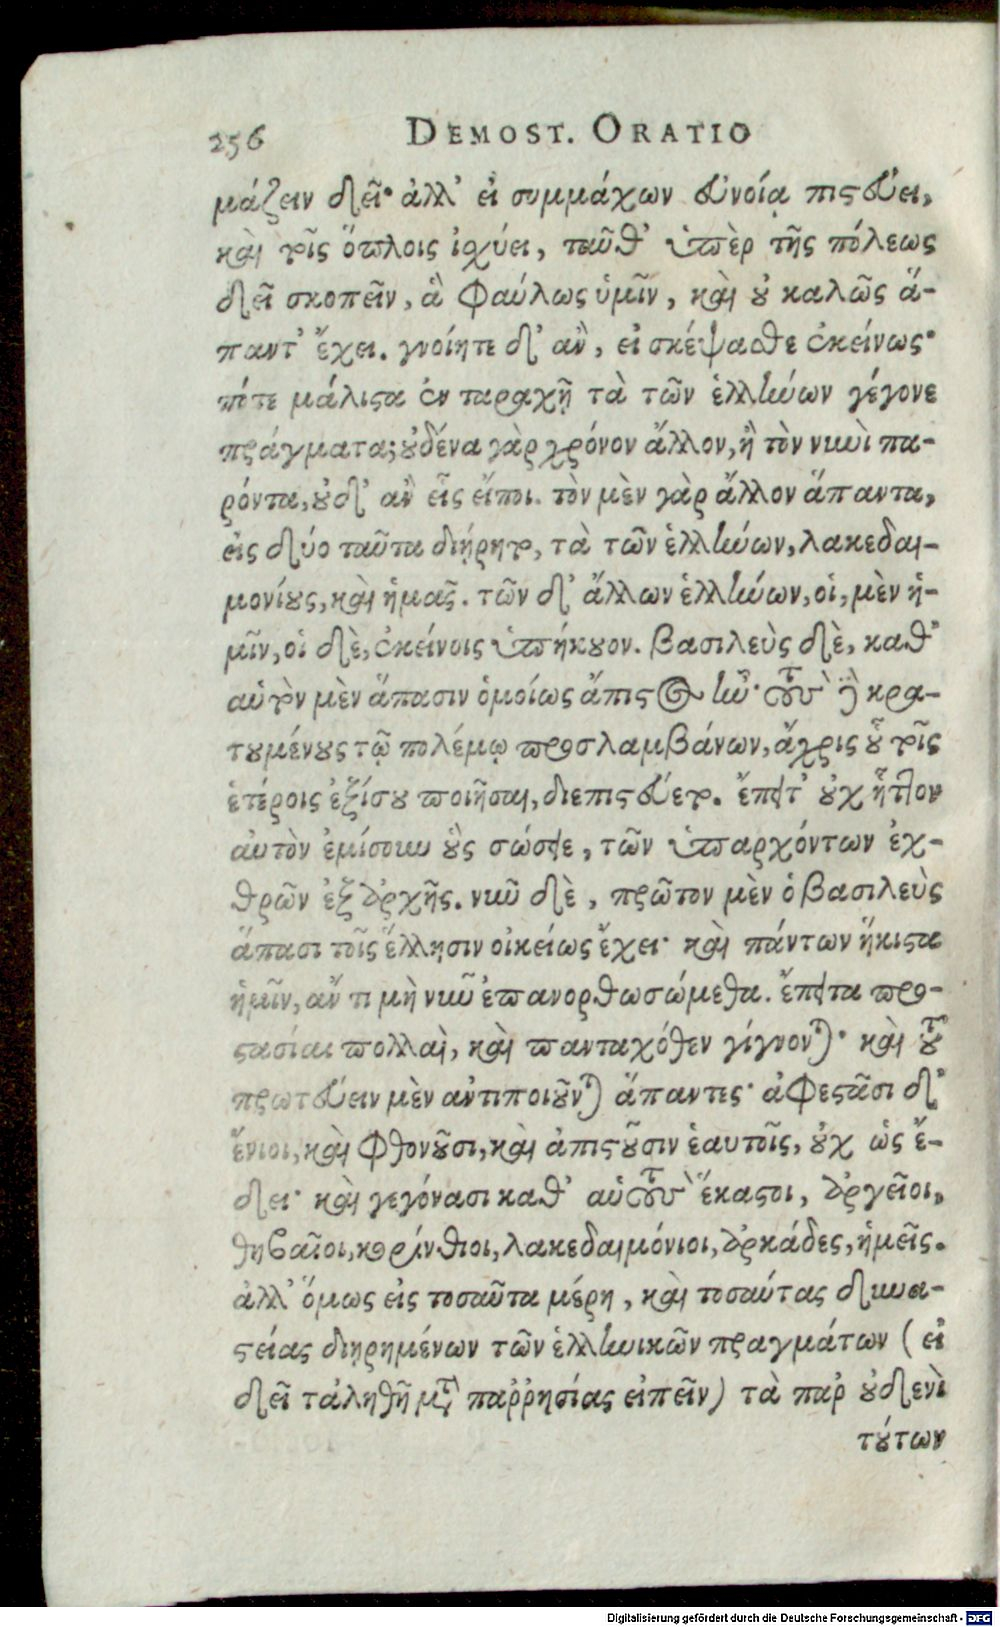 256 DEMOST. ORATIO
μάζειν δεῖ· ἀλλ' εἰ συμμάχων εὐνοίᾳ πιστεύει,
καὶ τοῖς ὅπλοις ἰσχύει, ταῦθ' ὑπὲρ τῆς πόλεως
δεῖ σκοπεῖν, ἃ φαύλως ὑμῖν, καὶ οὐ καλῶς ἅ-
παντ' ἔχει. γνοίητε δ' ἂν, εἰ σκέψασθε ἐκείνως·
πότε μάλιστα ἐν ταραχῇ τὰ τῶν ἑλλήνων γέγονε
πράγματα; οὐδένα γὰρ χρόνον ἄλλον, ἢ τὸν νυνὶ πα-
ρόντα, οὐδ' ἂν εἷς εἴποι. τὸν μὲν γὰρ ἄλλον ἅπαντα,
εἰς δύο ταῦτα διῄρητο, τὰ τῶν ἑλλήνων, λακεδαι-
μονίους, καὶ ἡμᾶς. τῶν δ' ἄλλων ἑλλήνων, οἱ, μὲν ἡ-
μῖν, οἱ δὲ, ἐκείνοις ὑπήκουον. βασιλεὺς δὲ, καθ'
αὑτὸν μὲν ἅπασιν ὁμοίως ἄπιστος ἦν· τοὺς δὲ κρα-
τουμένους τῷ πολέμῳ προσλαμβάνων, ἄχρις οὗ τοῖς
ἑτέροις ἐξίσου ποιῆσαι, διεπιστεύετο. ἔπειτ' οὐχ ἧττον
αὐτὸν ἐμίσουν οὓς σώσειε, τῶν ὑπαρχόντων ἐχ-
θρῶν ἐξ ἀρχῆς. νῦν δὲ, πρῶτον μὲν ὁ βασιλεὺς
ἅπασι τοῖς ἕλλησιν οἰκείως ἔχει· καὶ πάντων ἥκιστα
ἡμῖν, ἄν τι μὴ νῦν ἐπανορθωσώμεθα. ἔπειτα προ-
στασίαι πολλαὶ, καὶ πανταχόθεν γίγνονται· καὶ τοῦ
πρωτεύειν μὲν ἀντιποιοῦνται ἅπαντες· ἀφεστᾶσι δ'
ἔνιοι, καὶ φθονοῦσι, καὶ ἀπιστοῦσιν ἑαυτοῖς, οὐχ ὡς ἔ-
δει· καὶ γεγόνασι καθ' αὑτοὺς ἕκαστοι, ἀργεῖοι,
θηβαῖοι, κορίνθιοι, λακεδαιμόνιοι, ἀρκάδες, ἡμεῖς.
ἀλλ' ὅμως εἰς τοσαῦτα μέρη, καὶ τοσαύτας δυνα-
στείας διῃρημένων τῶν ἑλληνικῶν πραγμάτων (εἰ
δεῖ τἀληθῆ μετὰ παῤῥησίας εἰπεῖν) τὰ παρ' οὐδενὶ
τούτων
Digitalisierung gefördert durch die Deutsche Forschungsgemeinschaft - DFG